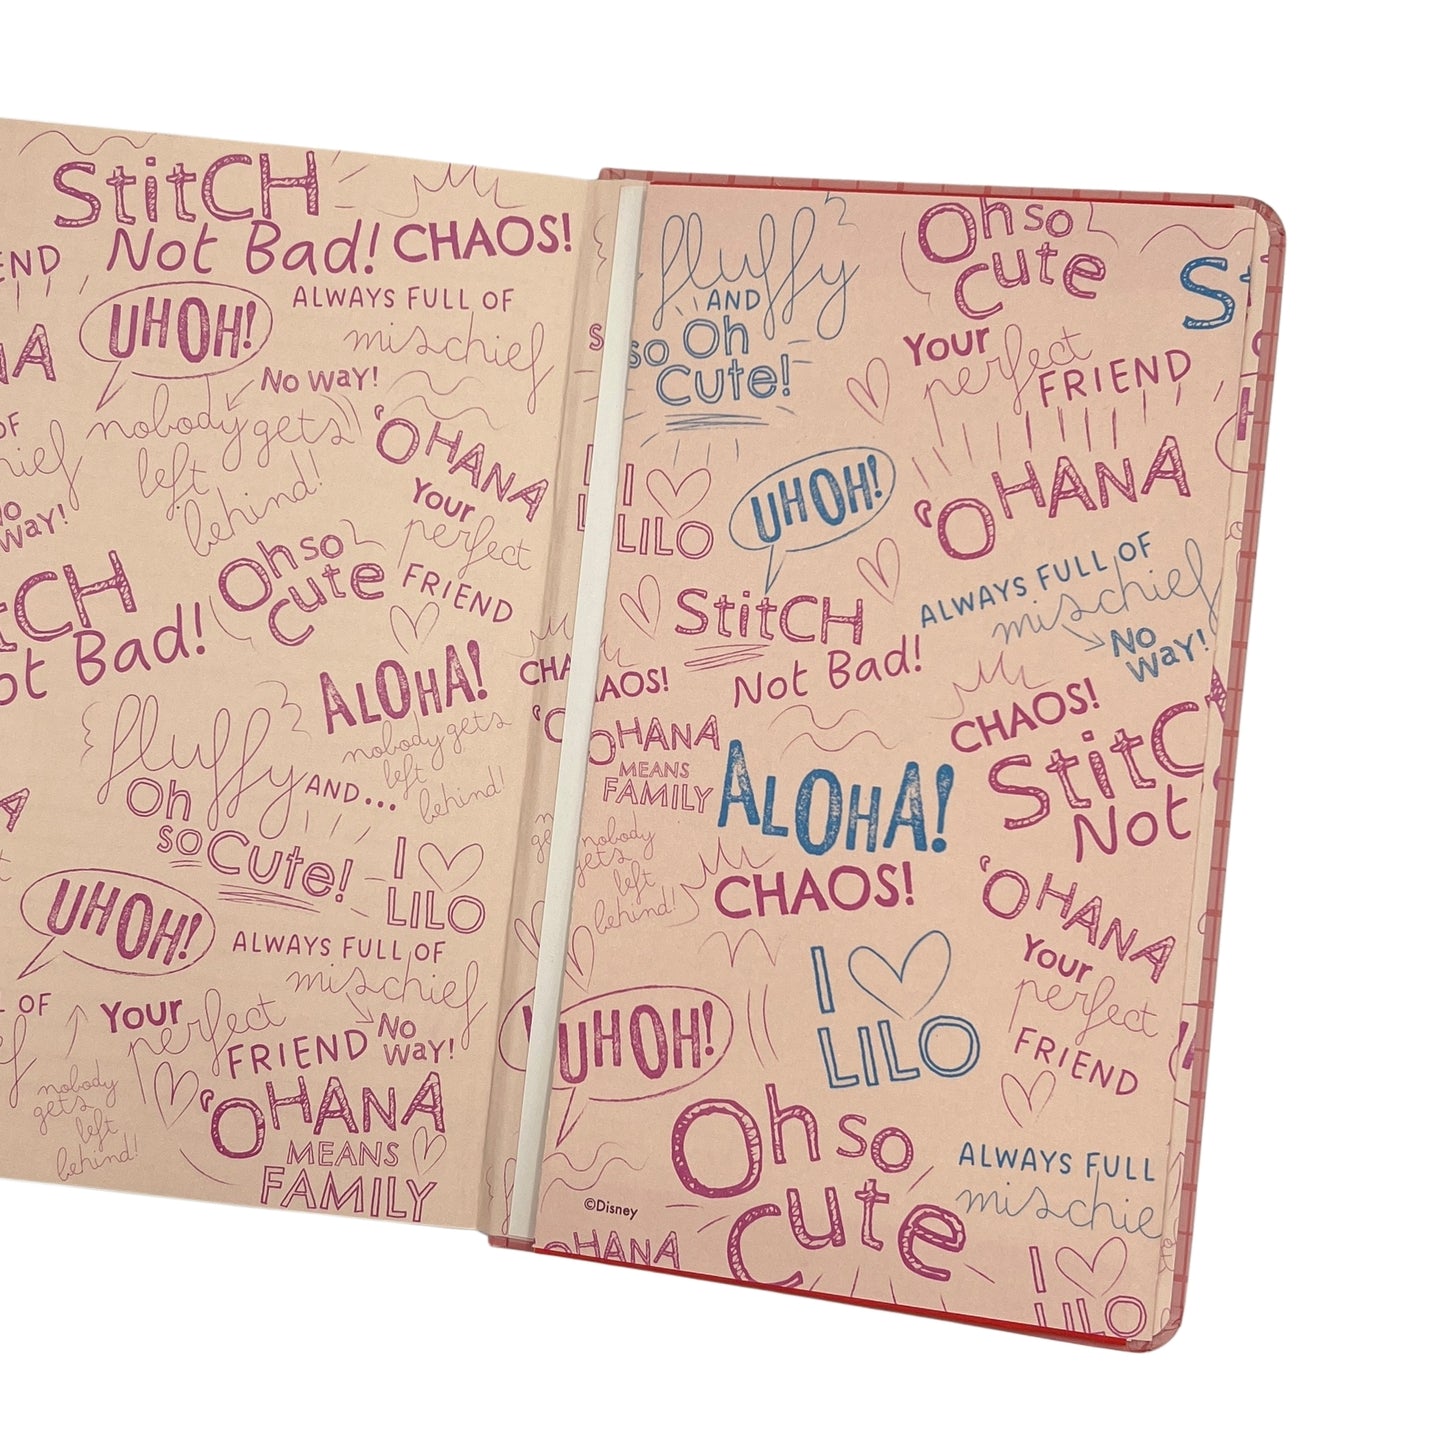 StitCH
Not Bad! CHAOS!
END
UHOH!
ALWAYS FULL OF
mischief
NO WAY!
nobody gets
left
behind!
'OHANA
Your
perfect
FRIEND
OF
NO
WAY!
Oh so
Cute
StitCH
Not Bad!
ALOHA!
nobody gets
left
behind!
fluffy AND...
Oh
so Cute!
I
LILO
UHOH!
ALWAYS FULL OF
mischief
NO
WAY!
L OF
Your
perfect
FRIEND
nobody
gets
left
behind!
'OHANA
MEANS
FAMILY
CHA
fluffy
AND
Oh
so
Cute!
Oh so
Cute
St
Your
perfect
FRIEND
I
LILO
UHOH!
'OHANA
ALWAYS FULL OF
mischief
NO
WAY!
StitCH
Not Bad!
HAOS!
OHANA
MEANS
FAMILY
ALOHA!
CHAOS!
StitC
Not
nobody
gets
left
behind!
CHAOS!
'OHANA
Your
perfect
FRIEND
I
LILO
UHOH!
Oh so
Cute
ALWAYS FULL
mischie
©Disney
OHANA
I
LILO